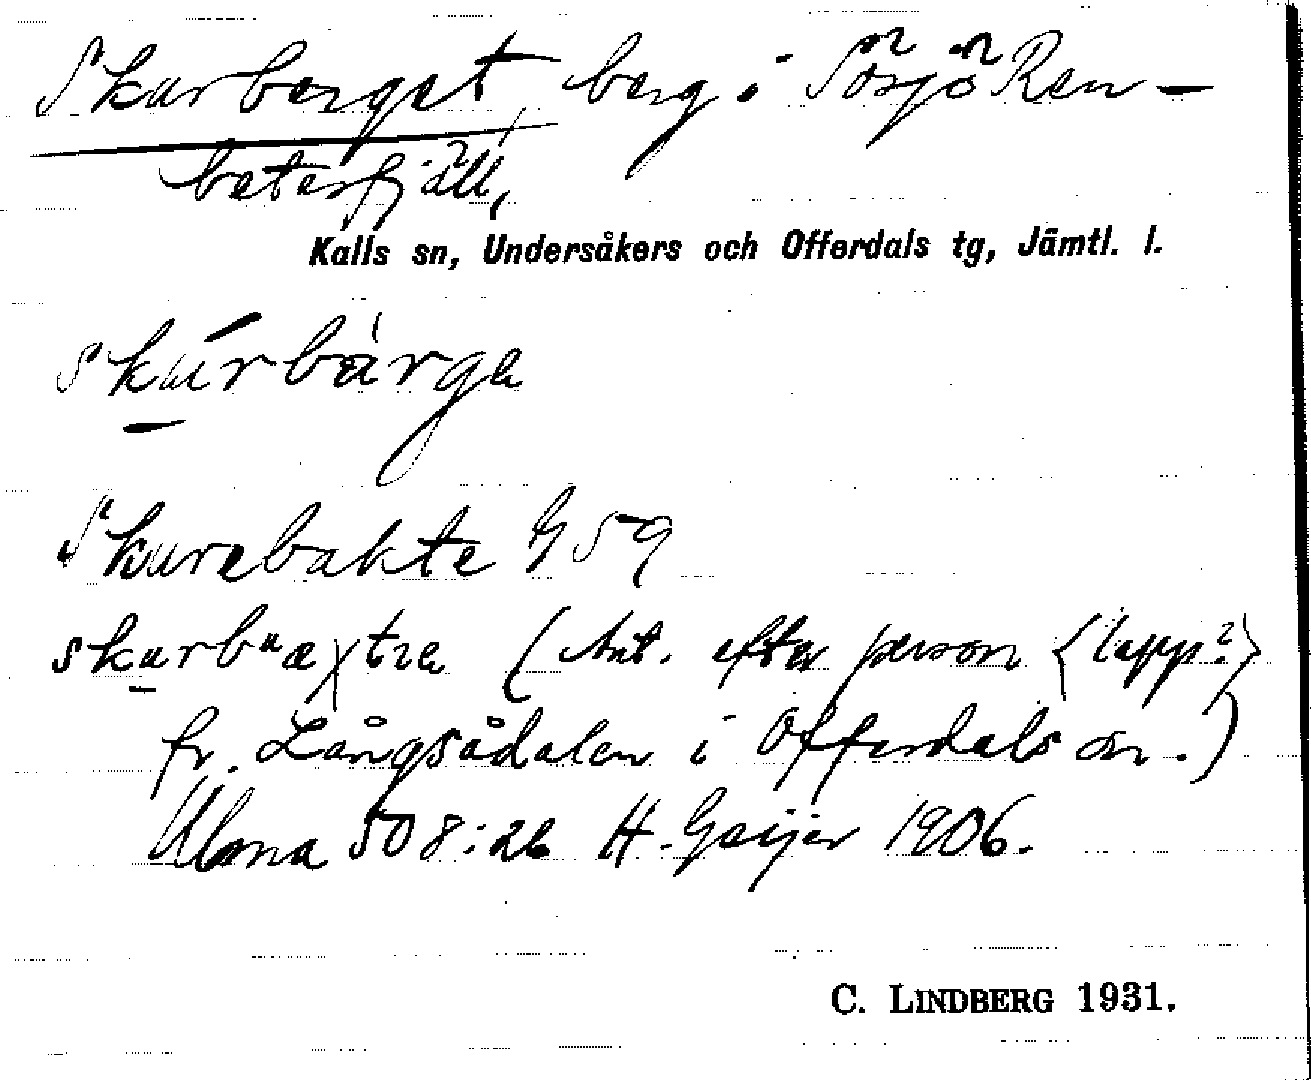 Skurberget, berg i Sösjö Ren-
betesfjäll,
Kalls sn, Undersåkers och Offerdals tg, Jämtl. l.
skúrbàrge
Skurebakte G 59
skurbᵃæχtre (Ant. efter person <lapp?>
fr. Långsådalen i Offerdals sn.)
Ulma 508:26 H. Geijer 1906.
C. LINDBERG 1931.